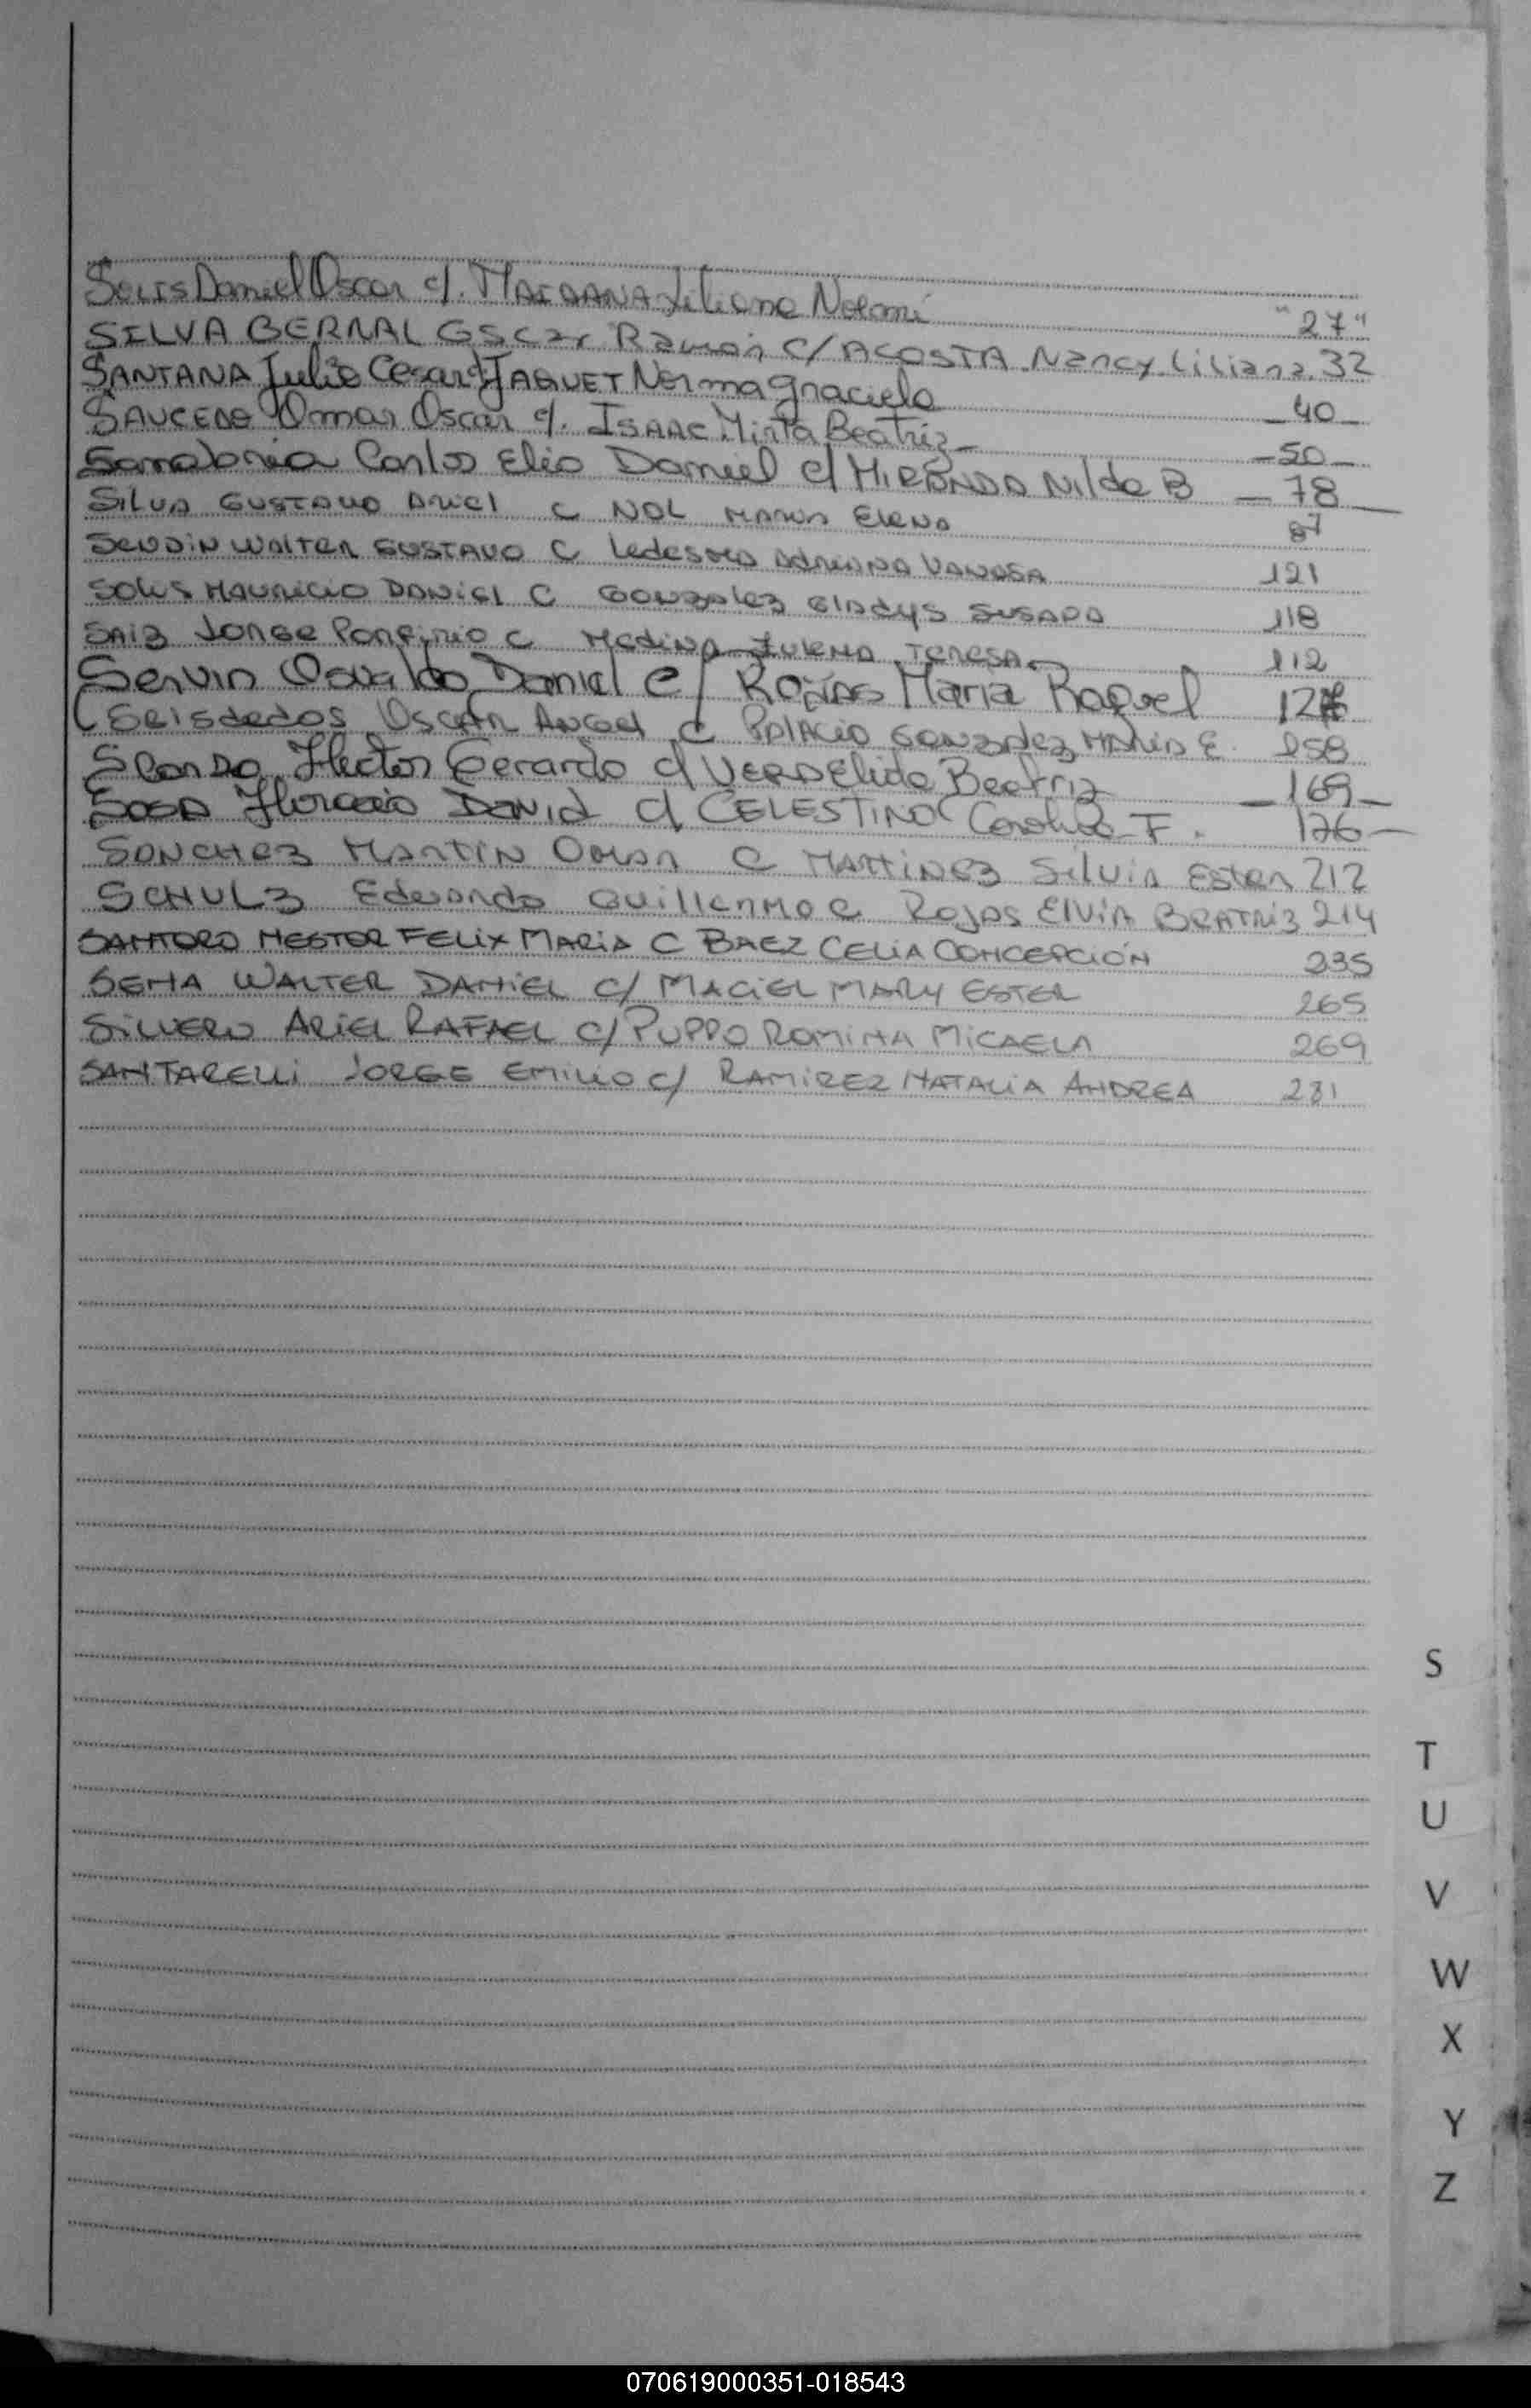 Solis Daniel Oscar c/. MAIDANA Liliana Noemí "27"
SILVA BERNAL Oscar Ramón C/ ACOSTA Nancy Liliana. 32
SANTANA Julio Cesar c/ JAQUET Norma Graciela - 40 -
SAUCEDO Omar Oscar c/. ISAAC Mirta Beatriz - - 50 -
Sanabria Carlos Elio Daniel c/ MIRANDA Nilda B - 78 -
Silva GUSTAVO Ariel C NOL Maria Elena 87
WALTER GUSTAVO C Ledesma Adriana VANESA 121
Solis MAURICIO DANIEL C Gonzalez Gladys SUSANA 118
SAIZ JORGE Porfirio C Medina TERESA 112
Servin Osvaldo Daniel c/ ROJAS Maria Raquel
Seisdedos OSCAR ANGEL C PALACIO GONZALEZ MARIA E. 158
Hector Gerardo c/ VERA Elida Beatriz - 169 -
SOSA Horacio DAVID c/ CELESTINO F. 176 -
SANCHEZ MARTIN Omar C MARTINEZ Silvia Ester 212
SCHULZ Eduardo Guillermo C Rojas Elvia BEATRIZ 214
SANTORO NESTOR FELIX MARIA C BAEZ CELIA CONCEPCIÓN 235
SENA WALTER DANIEL C/ MACIEL MARY ESTER 265
SILVERO ARIEL RAFAEL C/ PUPPO ROMINA MICAELA 269
SANTARELLI JORGE EMILIO C/ RAMIREZ NATALIA ANDREA 281
S
T
U
V
W
X
Y
Z
070619000351-018543